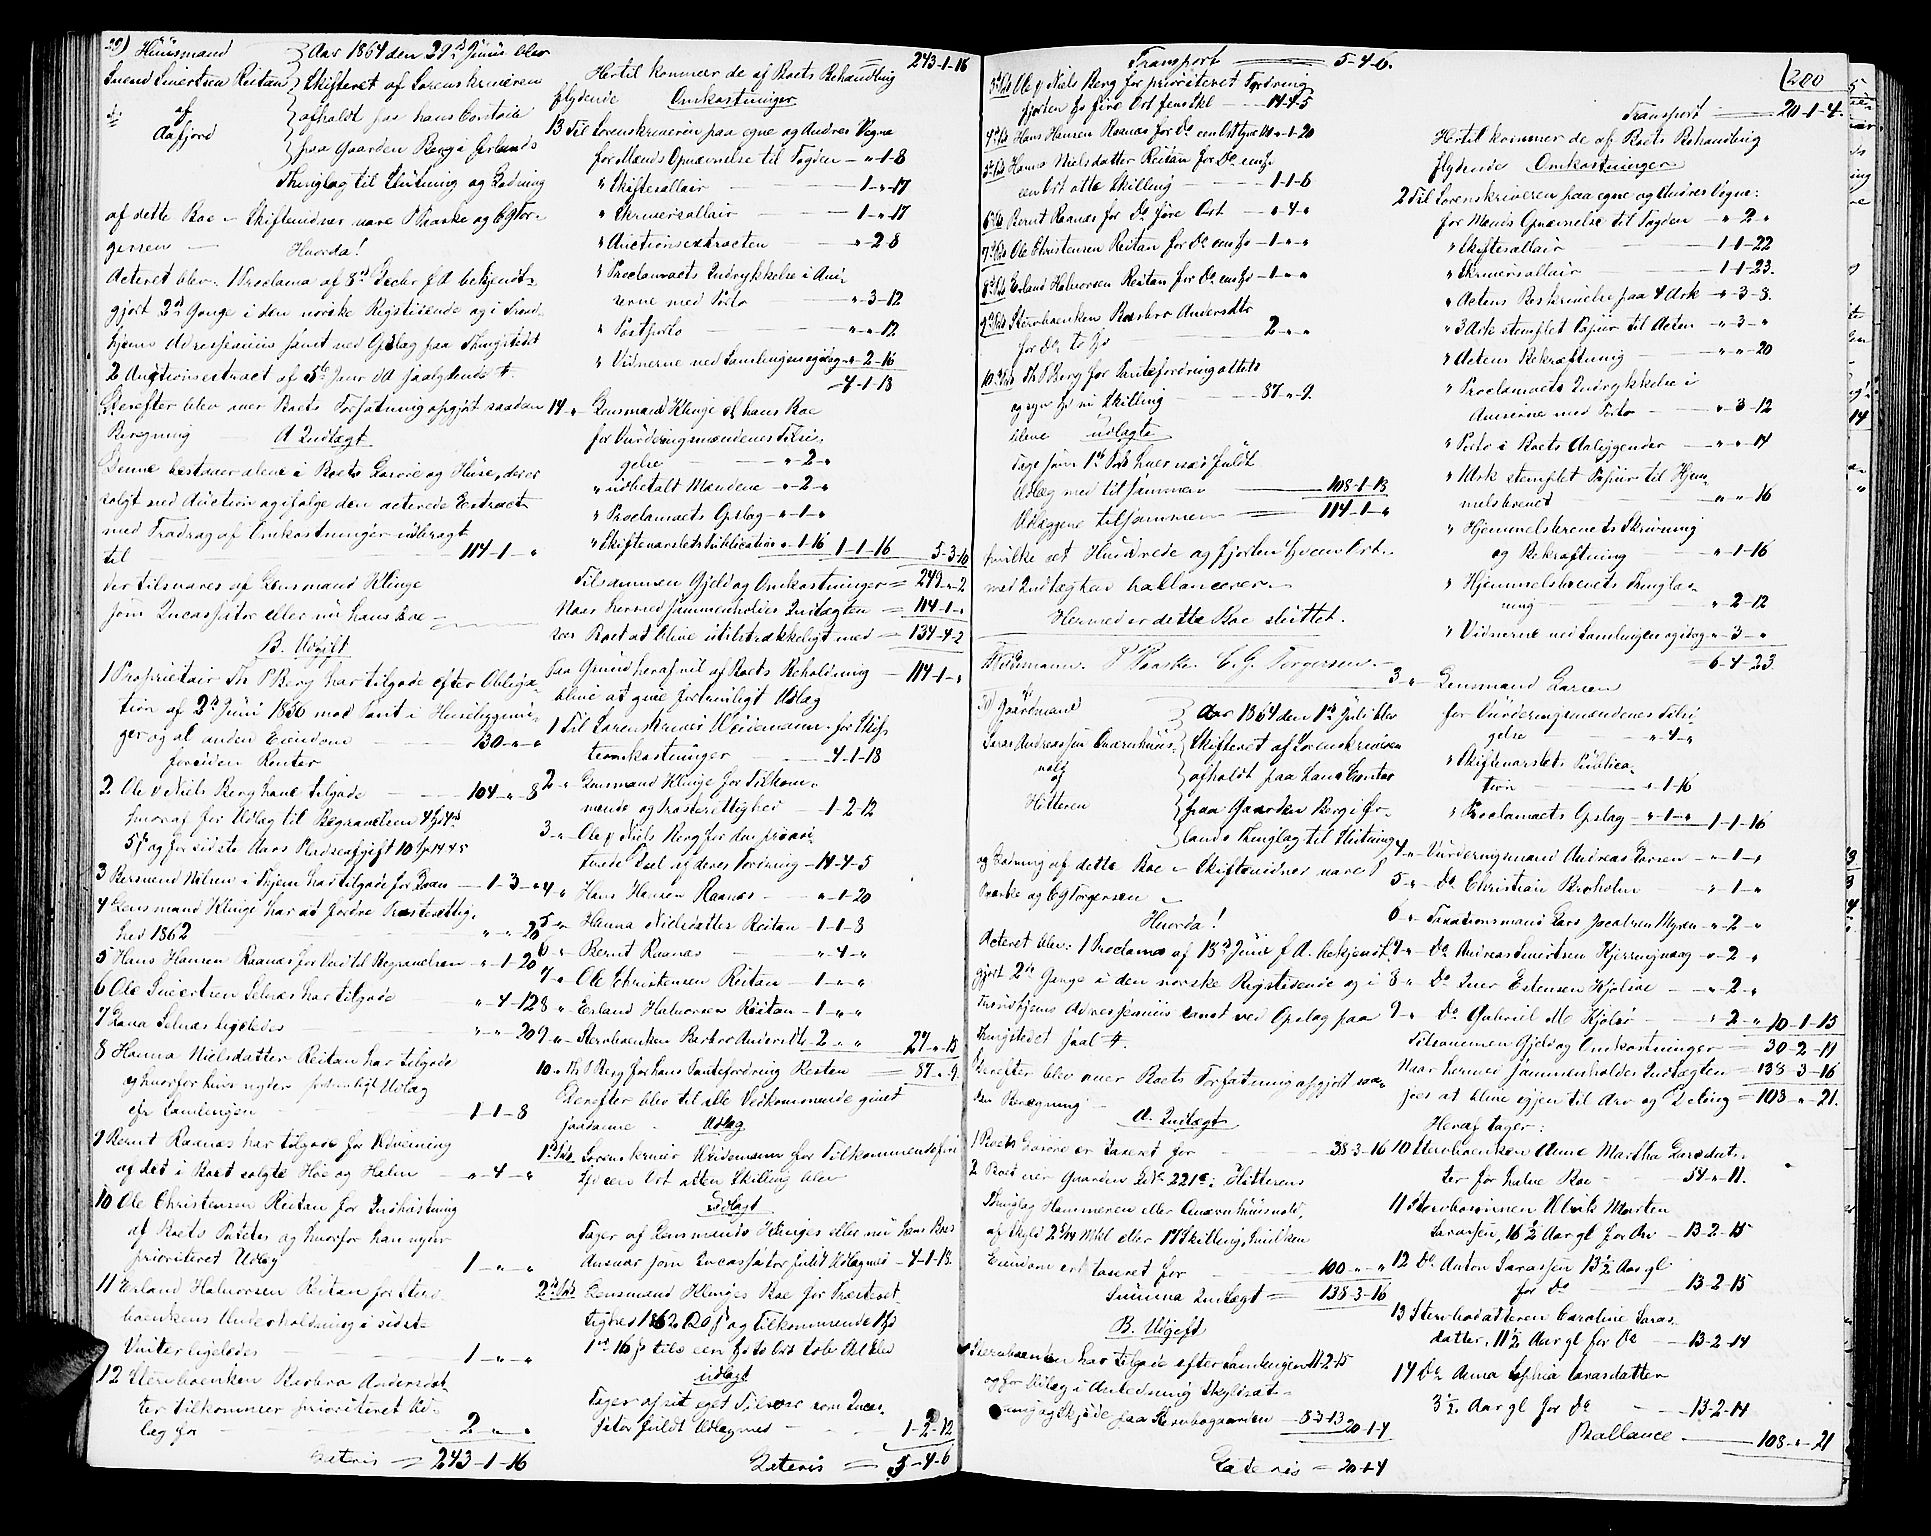 29) Huusmand
Svend Sivertsen Reitan
af
Aafjord
Aar 1864 den 29d Junii blev
Skifteret af Sorenskriveren
afholdt paa hans Contoir
paa Gaarden Berg i Ørlands
Thinglag til Slutning og Lodning
af dette Boe. Skiftevidner vare P Braske og C G Tor-
gersen
Hvorda!
Acteret blev: 1 Proclama af 8d Decbr f A bekjendt-
gjort 2de Gange i den norske Rigstidende og i Trond-
hjems Adresseavis samt ved Opslag paa Thingstedet
2 Auctionsextract af 5te Janr d A saalydende #.
Derefter blev over Boets Forfatning opgjort saadan
Beregning
A Indtægt
Denne bestaaer alene i Boets Løsøre og Huse, der er
solgt ved Auction og ifølge den acterede Extract
med Fradrag af Omkostninger udbragt
til 114-1-"
der tilsvares af Lensmand Klinge
som Incassator eller nu hans Boe
B. Udgift
1 Proprietair Th P Berg har tilgode efter Obliga-
tion af 2d Juni 1856 med Pant i Huusebygnin-
ger og al anden Eiendom 130-"-"
foruden Renter
2 Ole & Niels Berg have tilgode 104-"-8
hvoraf for Udlæg til Begravelsen 4 Spd 4 ort
5 ß og for sidste Aars Pladseafgift 10 Sp
3 Bersvend Nilsen i Skjem har tilgode for Laan 1-3-"
4 Lensmand Klinge har at fordre Præsterettig-
hed 1862 "-"-20
5 Hans Hansen Raanæs for Ved til Begravelsen "-1-20
6 Ole Sivertsen Selnæs har tilgode "-4-12
7 Lana Selnæs ligeledes "-"-20
8 Hanna Nielsdatter Reitan har tilgode
og hvorfor hun nyder fortrinligt Udlæg
efr Samlingen 1-1-8
9 Bernt Raanæs har tilgode for Udveining
af det i Boet solgte Høe og Halm "-4-"
10 Ole Christensen Reitan for Indhøstning
af Boets Poteter og hvorfor han nyder
prioriteret Udlæg 1-"-"
11 Erland Halvorsen Reitan for Sterv-
boenkens Underholdning i sidst-
Vinter ligeledes 1-"-"
12 Stervboenken Berbro Andersdat-
ter tilkommer prioriteret Ud-
læg for 2-"-"
Lateris = 243-1-16
243-1-16
Hertil kommer de af Boets Behandling
flydende Omkostninger
13 Til Sorenskriveren paa egne og Andres Vegne
for Mænds Opnævnelse til Fogden "-1-8
" Skiftesallair 1-"-17
" Skriversallair 1-"-17
" Auctionsextracten "-2-8
" Proclamaets Indrykkelse i Avi-
serne med Porto "-3-12
" Postporto "-"-12
" Vidnerne ved Samlingen og idag "-2-16
4-1-18
14 " Lensmand Klinge el hans Boe
for Vurderingsmændenes Tilsi-
gelse "-2-"
" udbetalt Mændene "-2-"
" Proclamaets Opslag "-1-"
" Skiftevarslets Publication "-1-16 1-1-16 5-3-10
Tilsammen Gjeld og Omkostninger = 249-"-2
Naar hermed sammenholdes Indtægten = 114-1-"
sees Boet at blive utilstrækkeligt med 134-4-2
Paa Grund heraf vil af Boets Beholdning 114-1-"
blive at give fortrinligt Udlæg
1 Til Sorenskriver Weidemann for Skif-
teomkostninger 4-1-18
2 " Lensmand Klinge for Tilkom-
mende og Præsterettighed 1-2-12
3 " Ole & Niels Berg for den priori-
terede Deel af deres Fordring 14-4-5
4 " Hans Hansen Raanæs "-1-20
5 " Hanna Nielsdatter Reitan 1-1-8
6 " Bernt Raanæs "-4-"
7 " Ole Christensen Reitan 1-"-"
8 " Erland Halvorsen Reitan 1-"-"
9 " Stervboenken Berbro Andersdtr 2-"-" 27-"-15
10 " Th P Berg for hans Pantefordring Resten 87-"-9
Derefter blev til alle Vedkommende givet
saadanne Udlæg
1st Post Sorenskriver Weidemann for Tilkommende fire
Spd een Ort atten Skilling blev
Udlagt
Tager af Lensmands Klinges eller nu hans Boes
Ansvar som Incassator fuldt Udlæg med 4-1-18.
2d Post Lensmand Klinges Boe for Præsteret-
tighed 1862 20 ß og Tilkommende 1 Spd
1 ort 16 ß tils een Spd to Ort tolv Sk blev
udlagt
Tager af sit eget Tilsvar som Incas-
sator fuldt Udlæg med 1-2-12
Lateris = 5-4-6
Transport 5-4-6.
3d Post Ole & Niels Berg for prioriteret Fordring
fjorten Spd fire Ort fem Skl 14-4-5
4d Post Hans Hansen Raanæs for Do een Ort tyve Sk "-1-20
5t Post Hanna Nielsdatter Reitan for Do een Spd
een Ort otte Skilling 1-1-8
6t Post Bernt Raanæs for Do fire Ort "-4-"
7d Post Ole Christensen Reitan for Do een Spd 1-"-"
8d Post Erland Halvorsen Reitan for Do een Spd 1-"-"
9d Post Stervboenken Berbro Andersdtr
for Do to Spd 2-"-"
10d Post Th P Berg for Pantefordring otteti
og syv Spd ni Skilling 87-"-9
bleve udlagte
Tage som 1st Post hver med fuldt
Udlæg med tilsammen 108-1-18
Udlæggene tilsammen 114-1-"
hvilke et Hundrede og fjorten Spd een Ort
med Indtægten ballancerer.
Hermed er dette Boe sluttet.
Weidemann. P Braske C. G. Torgersen.
30) Gaardmand
Lars Andreassen Qværnhuus-
vold
af
Hitteren
Aar 1864 den 1st Juli blev
Skifteret af Sorenskriveren
afholdt paa hans Contoir
paa Gaarden Berg i Ør-
lands Thinglag til Slutning
og Lodning af dette Boe. Skiftevidner vare P
Braske og C G Torgersen
Hvorda!
Acteret blev: 1 Proclama af 13d Juni f. A. bekjendt-
gjort 2de Gange i den norske Rigstidende og i
Trondhjems Adresseavis samt ved Opslag paa
Thingstedet saal #.
Derefter blev over Boets Forfatning opgjort saa-
dan Beregning
A. Indtægt
1 Boets Løsøre er taxeret for 38-3-16
2 Boet eier Gaarden L No 221c i Hitterens
Thinglag Hammeren eller Qværnhuusvold,
af Skyld 2 5/24 Mkl eller 17 Skilling, hvilken
Eiendom er taxeret for 100-"-"
Summa Indtægt = 138-3-16
B. Udgift
1 Stervboenken har tilgode efter Samlingen 11-2-15
og for Udlæg i Anledning Skyldsæt-
ning og Skjøde paa Stervbogaarden 8-3-13 20-1-4
Lateris = 20-1-4
200
Transport 20-1-4.
Hertil kommer de af Boets Behandling
flydende Omkostninger
2 Til Sorenskriveren paa egne og Andres Vegne:
for Mænds Opnævnelse til Fogden "-2-"
" Skiftesallair 1-1-22
" Skriversallair 1-1-23.
" Actens Beskrivelse paa 4 Ark "-3-8.
" 3 Ark stemplet Papiir til Acten "-3-"
" Actens Bekræftning "-"-20
" Proclamaets Indrykkelse i
Aviserne med Porto "-3-12
" Porto i Boets Anliggender "-"-14
" Ark stemplet Papiir til Hjem-
melsbrevet "-"-16
" Hjemmelsbrevets Skrivning
og Bekræftning "-1-16
" Hjemmelsbrevets Thinglæs-
ning "-2-12
" Vidnerne ved Samlingen og idag "-3-"
6-4-23
3 " Lensmand Larsen
for Vurderingsmændenes Tilsi-
gelse "-4-"
" Skiftevarslets Publica-
tion "-1-16
" Proclamaets Opslag "-1-" 1-1-16
4 " Vurderingsmand Andreas Larsen "-1-"
5 " Do Christian Broholm "-1-"
6 " Taxationsmand Lars Jacobsen Myren "-2-"
7 " Do Andreas Sivertsen Kjerringvaag "-2-"
8 " Do Iver Estensen Kjølsøe "-2-"
9 " Do Gabriel M Kjølsø "-2-" 10-1-15
Tilsammen Gjeld og Omkostninger = 30-2-11
Naar hermed sammenholdes Indtægten = 138-3-16
sees at blive igjen til Arv og Deling = 108-"-21.
Heraf tager:
10 Stervboenken Anne Martha Larsdat-
ter for halve Boe 54-"-11.
11 Stervbosønnen Ulrik Morten
Larssen, 16 1/2 Aar gl for Arv 13-2-15
12 Do Anton Larssen 13 1/2 Aar gl
for Do 13-2-15
13 Stervbodatteren Caroline Lars-
datter, 11 1/2 Aar gl for Do 13-2-14
14 Do Anna Sophia Larsdatter
3 1/2 Aar gl for Do 13-2-14
Ballance 108-"-21